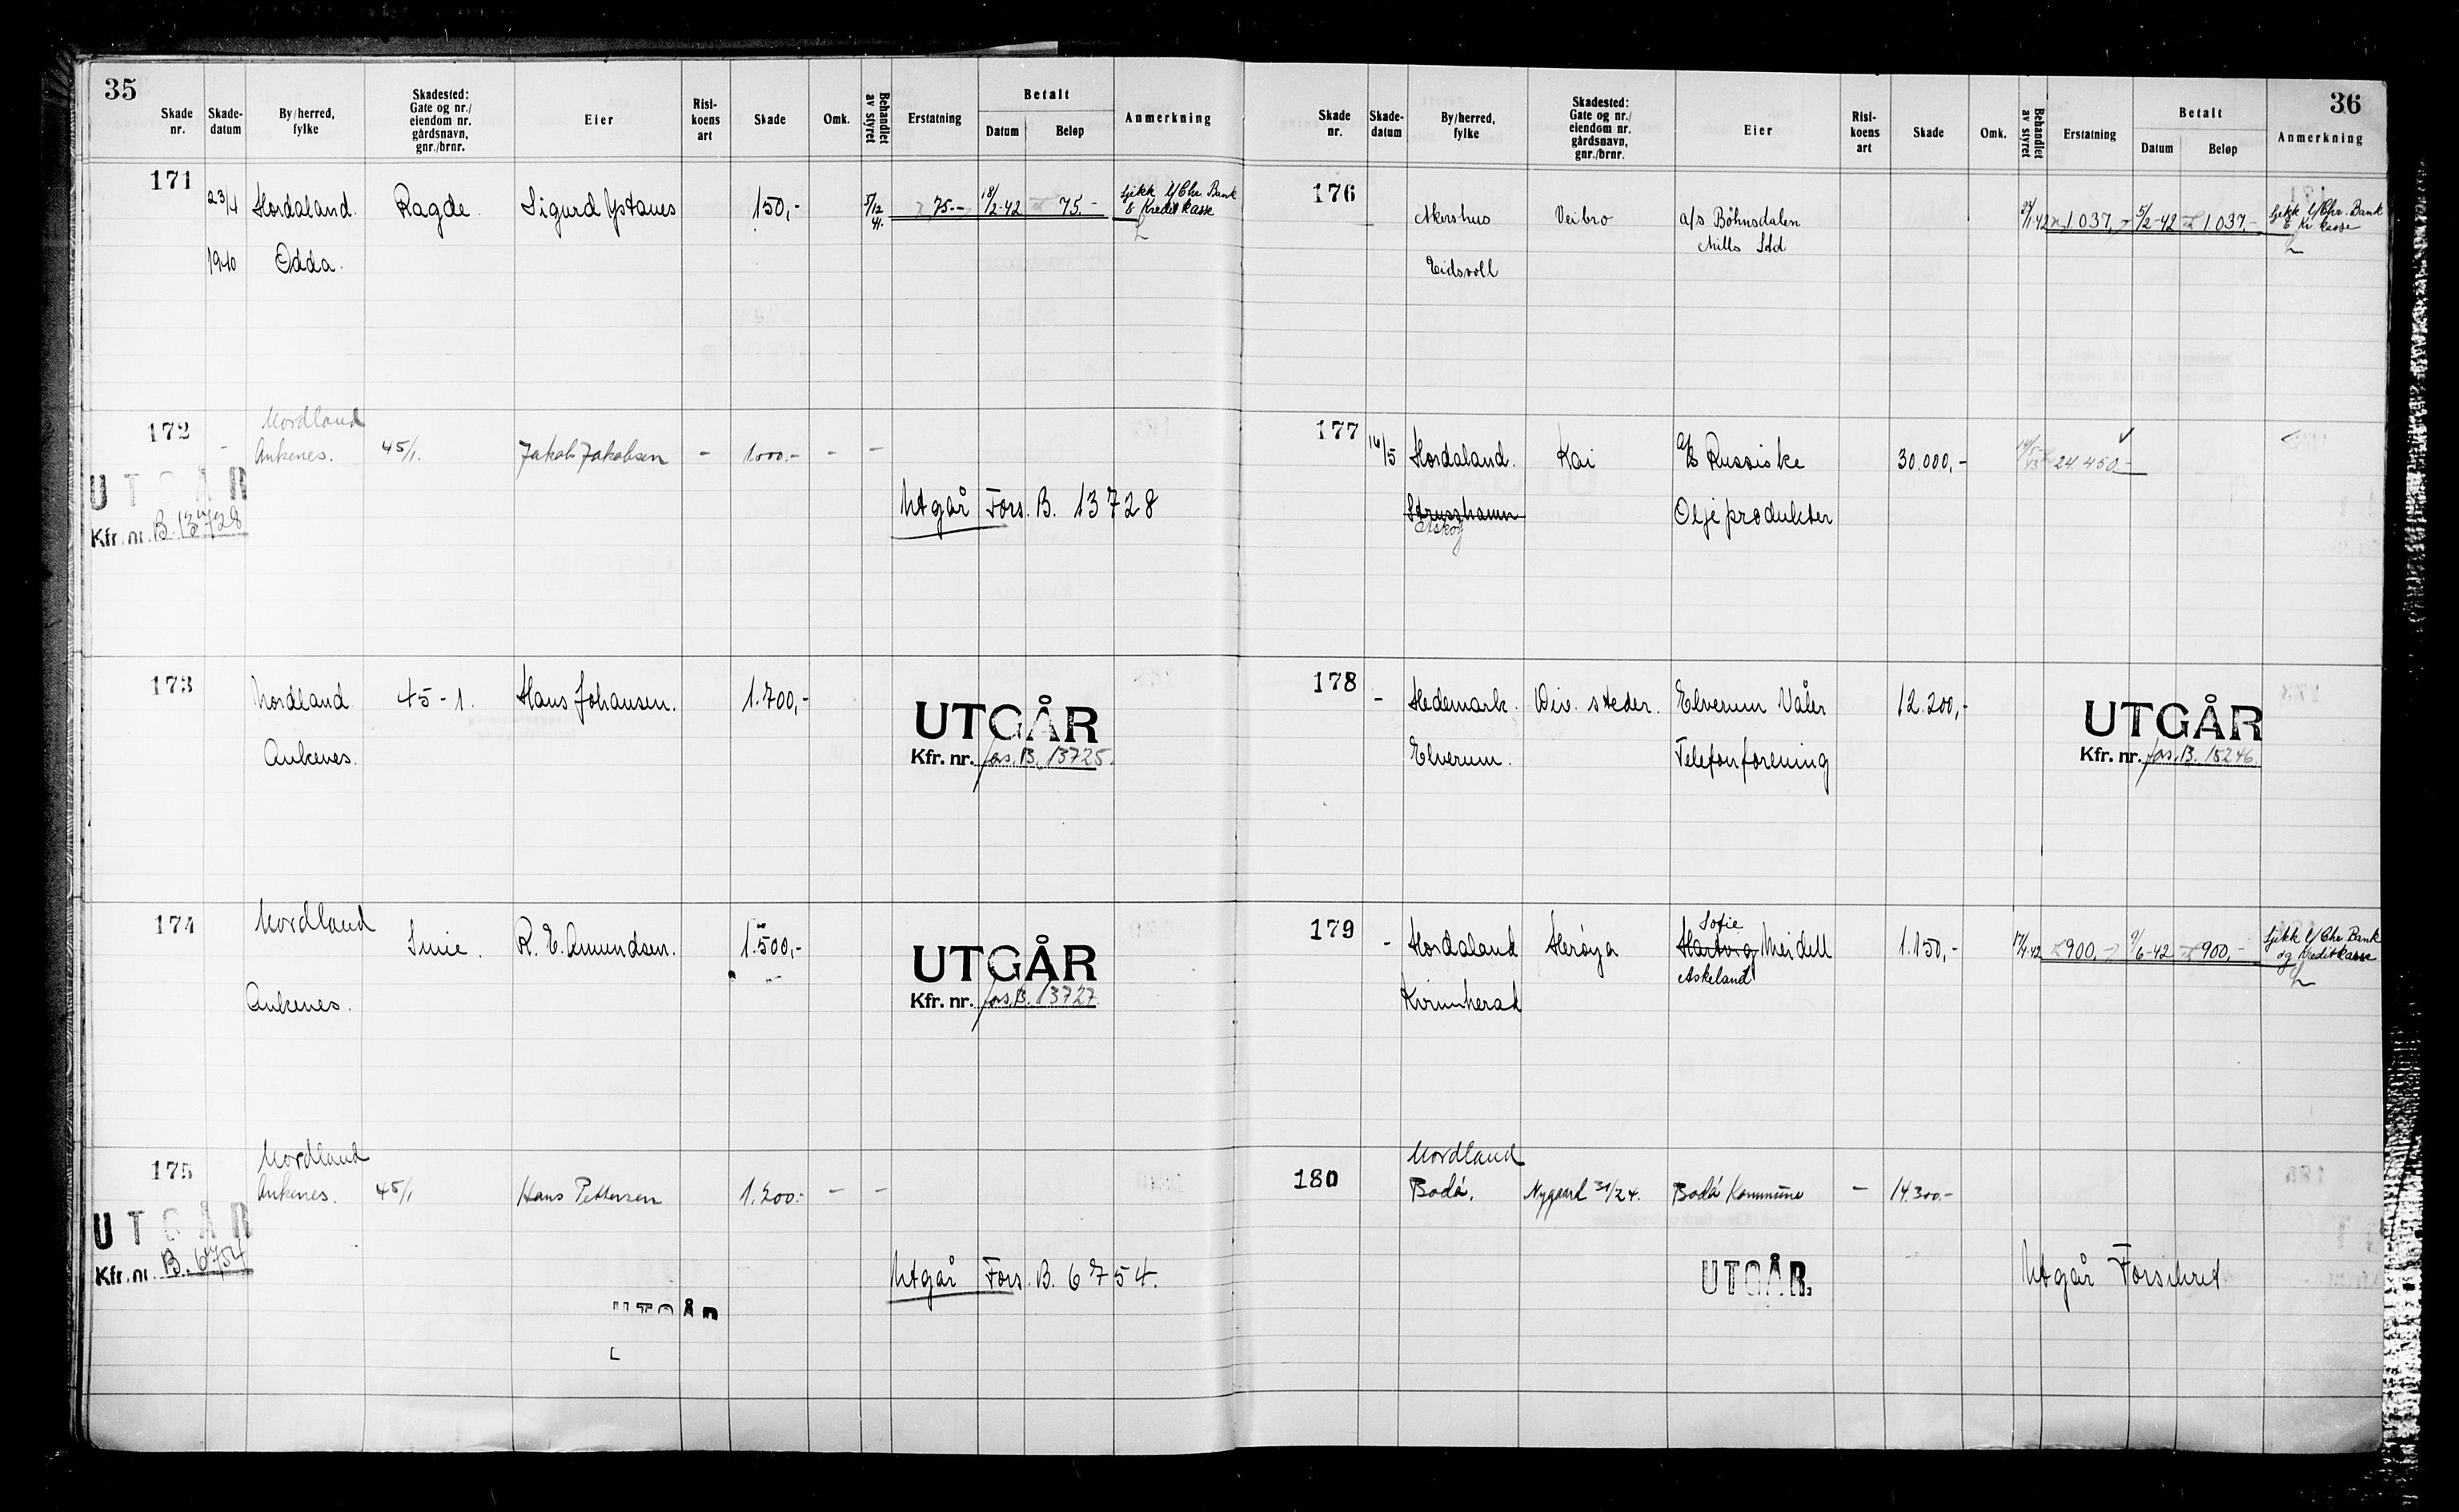 35
Skade nr.
Skade-datum
By/herred, fylke
Skadested: Gate og nr./ eiendom nr. gårdsnavn, gnr./brnr.
Eier
Risi-koens art
Skade
Omk.
Behandlet av styret
Erstatning
Betalt
Datum
Beløp
Anmerkning
171
23/4 Hordaland. Ragde. Sigurd Ystanes 150,- 5/12 41. 75.- 18/2-42 75.- Sjekk 1/Chr Bank
& Kreditkasse
1940 Odda.
172
Nordland
- Ankenes. 45/1. Jakob Jakobsen - 1000.- - -
UTGÅR
Kfr. nr. B. 13728
Utgår Fors. B. 13728
173
Nordland 45-1. Hans Johansen. 1.700,-
Ankenes.
UTGÅR
Kfr. nr. fors. B. 13725.
174
Nordland
R. E. Amundsen. 1.500,-
Ankenes.
UTGÅR
Kfr. nr. fors. B. 13727
175
Nordland
Ankenes. 45/1 Hans Pettersen 1.200.- - -
UTGÅR
Kfr. nr. B. 6754
Utgår Fors. B. 6754.
UTGÅR
36
Skade nr.
Skade-datum
By/herred, fylke
Skadested: Gate og nr./ eiendom nr. gårdsnavn, gnr./brnr.
Eier
Risi-koens art
Skade
Omk.
Behandlet av styret
Erstatning
Betalt
Datum
Beløp
Anmerkning
176
- Akershus Veibro a/s Böhnsdalen 1-42 1037,- 5/2-42 1.037,- Sjekk 1/Chr. Bank
Mills Ltd & Kr kasse
Eidsvoll
177
16/5 Hordaland. Kai a/s Russiske 30.000,- 24.450,-
Strusshamn Oljeprodukter
Askøy
178
- Hedemark. Div. steder. Elverum Våler 12.200,-
Elverum. Telefonforening
UTGÅR
Kfr. nr. fors. B. 15246.
179
Sofie
- Hordaland Herøya Hartvig Meidell 1.150,- 17/4-42 900,- 9/6-42 900,- Sjekk 1/Chr Bank
Askeland og Kreditkasse
Kvinnherad
180
Nordland
Bodö. Nygaard 31/24. Bodö Kommune - 14.300.-
UTGÅR.
Utgår